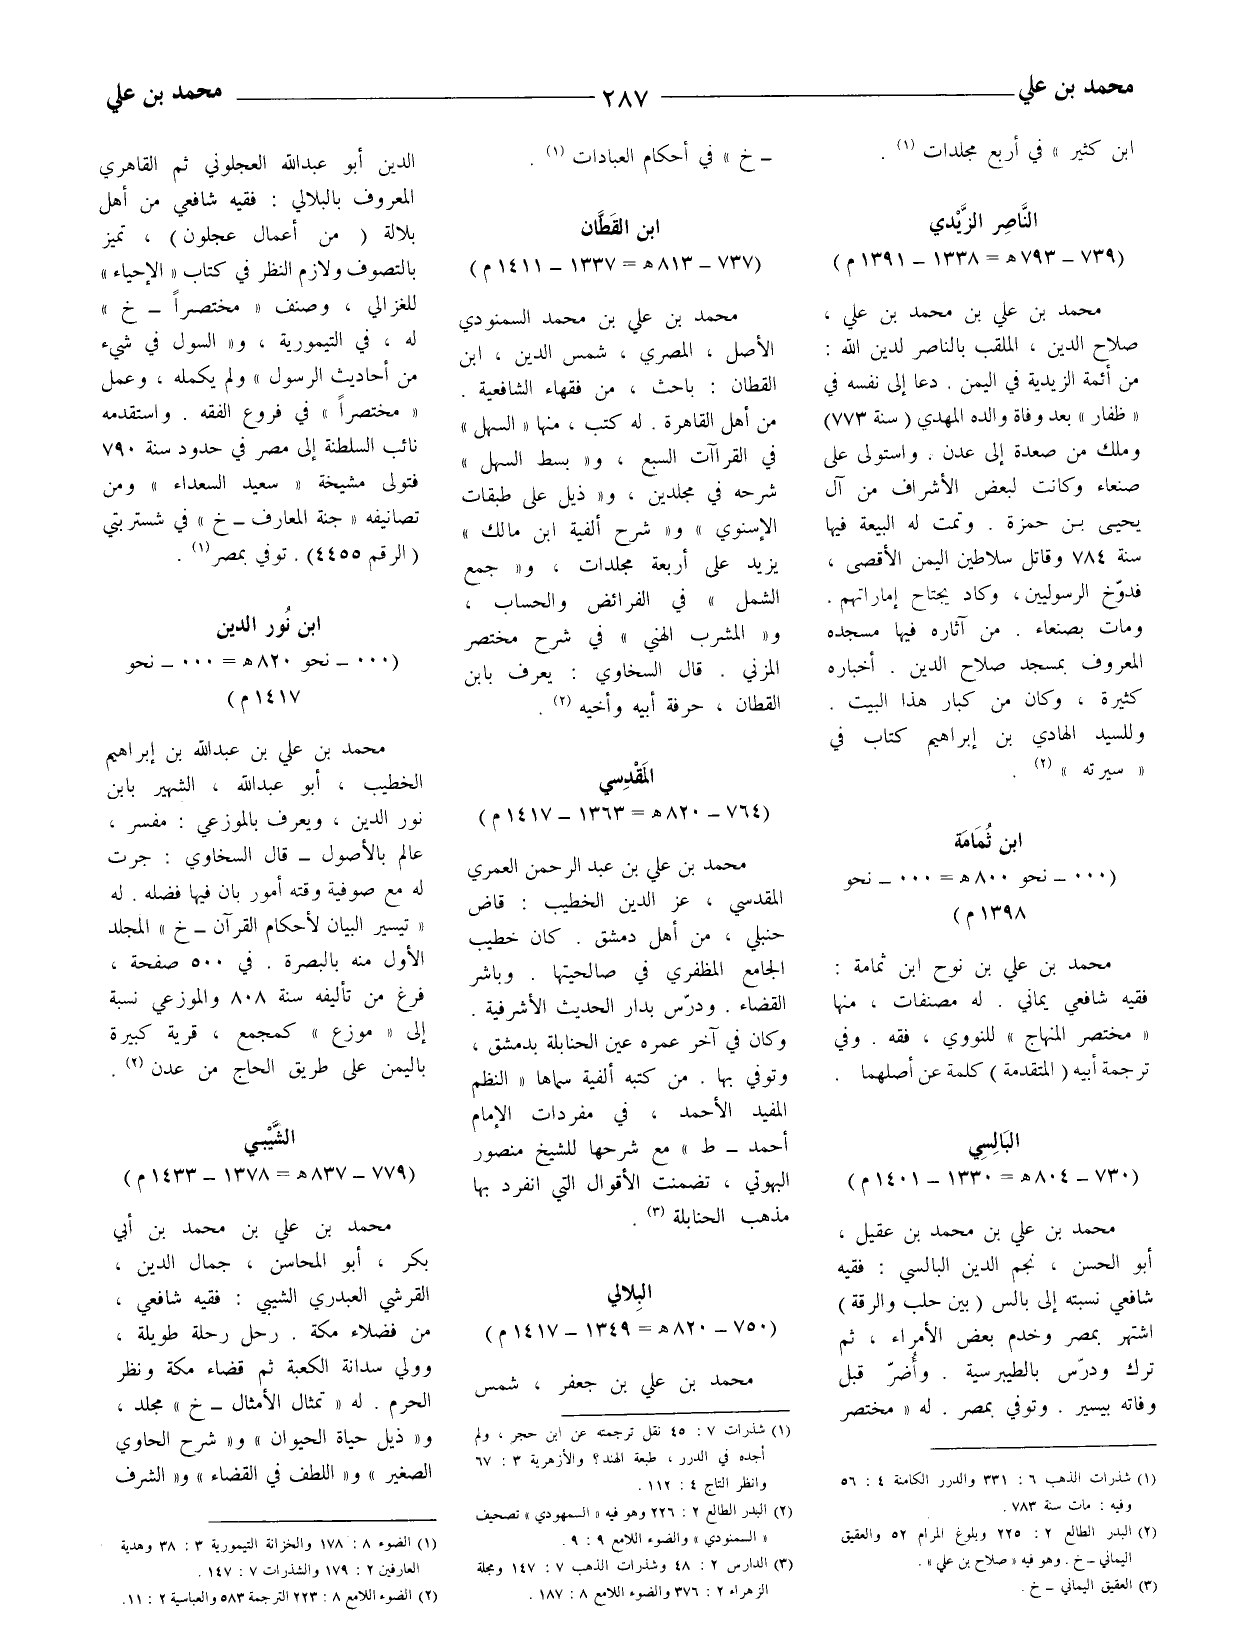 محمد بن علي ــــــ ٢٨٧ ــــــ محمد بن علي
ابن كثير » في أربع مجلدات (١) .
النَّاصِر الزَّيْدي
(٧٣٩ - ٧٩٣ ه = ١٣٣٨ - ١٣٩١ م)
محمد بن علي بن محمد بن علي ،
صلاح الدين ، الملقب بالناصر لدين الله :
من أئمة الزيدية في اليمن . دعا إلى نفسه في
« ظفار » بعد وفاة والده المهدي ( سنة ٧٧٣)
وملك من صعدة إلى عدن . واستولى على
صنعاء وكانت لبعض الأشراف من آل
يحيى بن حمزة . وتمت له البيعة فيها
سنة ٧٨٤ وقاتل سلاطين اليمن الأقصى ،
فدوّخ الرسوليين، وكاد يجتاح إماراتهم .
ومات بصنعاء . من آثاره فيها مسجده
المعروف بمسجد صلاح الدين . أخباره
كثيرة ، وكان من كبار هذا البيت .
وللسيد الهادي بن إبراهيم كتاب في
« سيرته » (٢) .
ابن ثُمَامَة
(٠٠٠ - نحو ٨٠٠ ه = ٠٠٠ - نحو
١٣٩٨ م)
محمد بن علي بن نوح ابن ثمامة :
فقيه شافعي يماني . له مصنفات ، منها
« مختصر المنهاج » للنووي ، فقه . وفي
ترجمة أبيه ( المتقدمة ) كلمة عن أصلهما .
البَالِسِي
(٧٣٠ - ٨٠٤ ه = ١٣٣٠ - ١٤٠١ م)
محمد بن علي بن محمد بن عقيل ،
أبو الحسن ، نجم الدين البالسي : فقيه
شافعي نسبته إلى بالس ( بين حلب والرقة )
اشتهر بمصر وخدم بعض الأمراء ، ثم
ترك ودرّس بالطيبرسية . وأُضرّ قبل
وفاته بيسير . وتوفي بمصر . له « مختصر
(١) شذرات الذهب ٦ : ٣٣١ والدرر الكامنة ٤ : ٥٦
وفيه : مات سنة ٧٨٣ .
(٢) البدر الطالع ٢ : ٢٢٥ وبلوغ المرام ٥٢ والعقيق
اليماني - خ . وهو فيه « صلاح بن علي » .
(٣) العقيق اليماني - خ .
- خ » في أحكام العبادات (١) .
ابن القَطَّان
(٧٣٧ - ٨١٣ ه = ١٣٣٧ - ١٤١١ م)
محمد بن علي بن محمد السمنودي
الأصل ، المصري ، شمس الدين ، ابن
القطان : باحث ، من فقهاء الشافعية .
من أهل القاهرة . له كتب ، منها « السهل »
في القراآت السبع ، و« بسط السهل »
شرحه في مجلدين ، و« ذيل على طبقات
الإسنوي » و« شرح ألفية ابن مالك »
يزيد على أربعة مجلدات ، و« جمع
الشمل » في الفرائض والحساب ،
و« المشرب الهني » في شرح مختصر
المزني . قال السخاوي : يعرف بابن
القطان ، حرفة أبيه وأخيه (٢) .
المَقْدِسي
(٧٦٤ - ٨٢٠ ه = ١٣٦٣ - ١٤١٧ م)
محمد بن علي بن عبد الرحمن العمري
المقدسي ، عز الدين الخطيب : قاض
حنبلي ، من أهل دمشق . كان خطيب
الجامع المظفري في صالحيتها . وباشر
القضاء . ودرّس بدار الحديث الأشرفية .
وكان في آخر عمره عين الحنابلة بدمشق ،
وتوفي بها . من كتبه ألفية سماها « النظم
المفيد الأحمد ، في مفردات الإمام
أحمد - ط » مع شرحها للشيخ منصور
البهوتي ، تضمنت الأقوال التي انفرد بها
مذهب الحنابلة (٣) .
البِلالي
(٧٥٠ - ٨٢٠ ه = ١٣٤٩ - ١٤١٧ م)
محمد بن علي بن جعفر ، شمس
(١) شذرات ٧ : ٤٥ نقل ترجمته عن ابن حجر ، ولم
أجده في الدرر ، طبعة الهند؟ والأزهرية ٣ : ٦٧
وانظر التاج ٤ : ١١٢ .
(٢) البدر الطالع ٢ : ٢٢٦ وهو فيه « السمهودي » تصحيف
« السمنودي » والضوء اللامع ٩ : ٩ .
(٣) الدارس ٢ : ٤٨ وشذرات الذهب ٧ : ١٤٧ ومجلة
الزهراء ٢ : ٣٧٦ والضوء اللامع ٨ : ١٨٧ .
الدين أبو عبدالله العجلوني ثم القاهري
المعروف بالبلالي : فقيه شافعي من أهل
بلالة ( من أعمال عجلون ) ، تميز
بالتصوف ولازم النظر في كتاب « الإحياء »
للغزالي ، وصنف « مختصراً - خ »
له ، في التيمورية ، و« السول في شيء
من أحاديث الرسول » ولم يكمله ، وعمل
« مختصراً » في فروع الفقه . واستقدمه
نائب السلطنة إلى مصر في حدود سنة ٧٩٠
فتولى مشيخة « سعيد السعداء » ومن
تصانيفه « جنة المعارف - خ » في شستربتي
( الرقم ٤٤٥٥) . توفي بمصر (١) .
ابن نُور الدين
(٠٠٠ - نحو ٨٢٠ ه = ٠٠٠ - نحو
١٤١٧ م)
محمد بن علي بن عبدالله بن إبراهيم
الخطيب ، أبو عبدالله ، الشهير بابن
نور الدين ، ويعرف بالموزعي : مفسر ،
عالم بالأصول - قال السخاوي : جرت
له مع صوفية وقته أمور بان فيها فضله . له
« تيسير البيان لأحكام القرآن - خ » المجلد
الأول منه بالبصرة . في ٥٠٠ صفحة ،
فرغ من تأليفه سنة ٨٠٨ والموزعي نسبة
إلى « موزع » كمجمع ، قرية كبيرة
باليمن على طريق الحاج من عدن (٢) .
الشَّيْبي
(٧٧٩ - ٨٣٧ ه = ١٣٧٨ - ١٤٣٣ م)
محمد بن علي بن محمد بن أبي
بكر ، أبو المحاسن ، جمال الدين ،
القرشي العبدري الشيبي : فقيه شافعي ،
من فضلاء مكة . رحل رحلة طويلة ،
وولي سدانة الكعبة ثم قضاء مكة ونظر
الحرم . له « تمثال الأمثال - خ » مجلد ،
و« ذيل حياة الحيوان » و« شرح الحاوي
الصغير » و« اللطف في القضاء » و« الشرف
(١) الضوء ٨ : ١٧٨ والخزانة التيمورية ٣ : ٣٨ وهدية
العارفين ٢ : ١٧٩ والشذرات ٧ : ١٤٧ .
(٢) الضوء اللامع ٨ : ٢٢٣ الترجمة ٥٨٣ والعباسية ٢ : ١١.